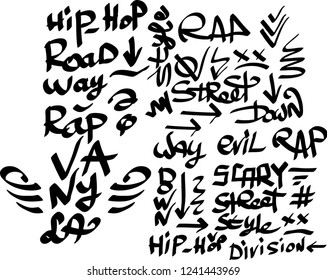 HiP-HoP
Road
Way
Rap
VA
Ny
LA
Style
RAP
xx
Street
Down
Way evil RAP
SCARY
Street #
Style xx
HiP-HoP Division
shutterstock.com · 1241443969